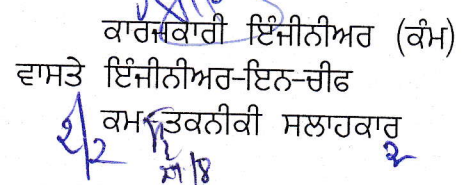 ਕਾਰਜਕਾਰੀ ਇੰਜੀਨੀਅਰ (ਕੰਮ)
ਵਾਸਤੇ ਇੰਜੀਨੀਅਰ-ਇਨ-ਚੀਫ
ਕਮ-ਤਕਨੀਕੀ ਸਲਾਹਕਾਰ